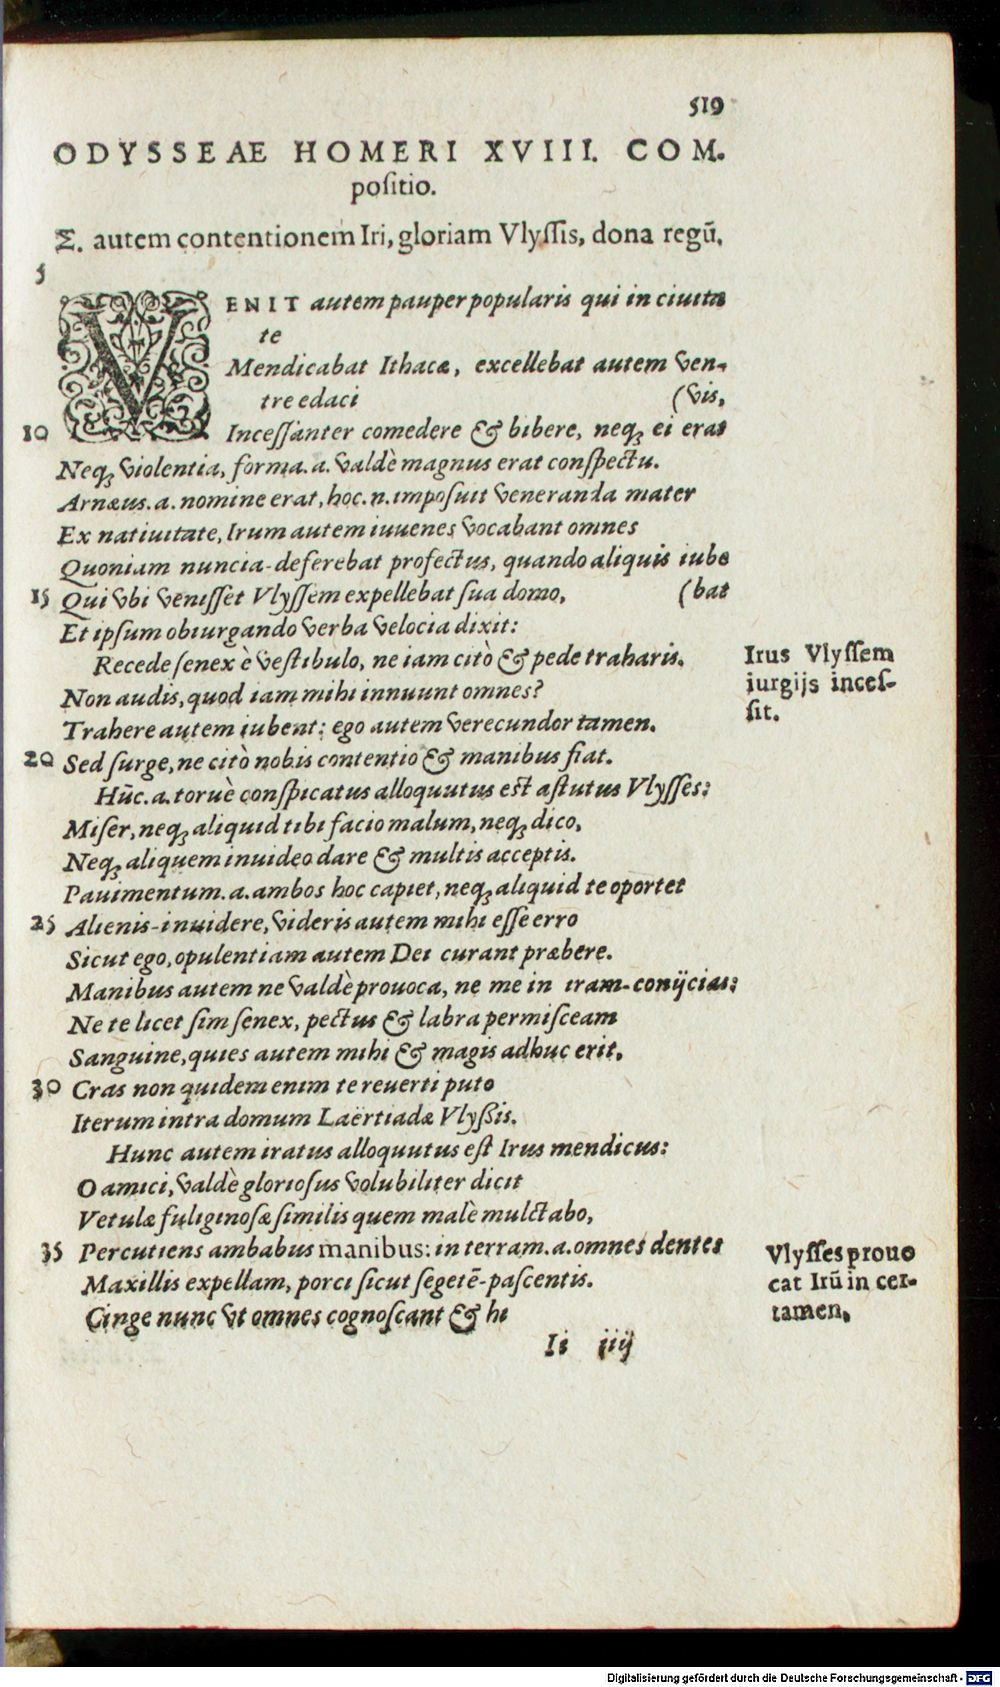 519
ODYSSEAE HOMERI XVIII. COM.
poſitio.
Σ. autem contentionem Iri, gloriam Vlyſſis, dona regū.
5
VENIT autem pauper popularis qui in ciuita
te
Mendicabat Ithacæ, excellebat autem ven-
tre edaci (vis,
10 Inceſſanter comedere & bibere, neqꝫ ei erat
Neqꝫ violentia, forma. a. valdè magnus erat conſpectu.
Arnæus. a. nomine erat, hoc. n. impoſuit veneranda mater
Ex natiuitate, Irum autem iuuenes vocabant omnes
Quoniam nuncia-deferebat profectus, quando aliquis iube
15 Qui vbi veniſſet Vlyſſem expellebat ſua domo, (bat
Et ipſum obiurgando verba velocia dixit:
Recede ſenex è veſtibulo, ne iam citò & pede traharis.
Irus Vlyſſem
iurgijs inceſ-
ſit.
Non audis, quod iam mihi innuunt omnes?
Trahere autem iubent: ego autem verecundor tamen.
20 Sed ſurge, ne citò nobis contentio & manibus fiat.
Hūc. a. toruè conſpicatus alloquutus eſt aſtutus Vlyſſes:
Miſer, neqꝫ aliquid tibi facio malum, neqꝫ dico,
Neqꝫ aliquem inuideo dare & multis acceptis.
Pauimentum. a. ambos hoc capiet, neqꝫ aliquid te oportet
25 Alienis-inuidere, videris autem mihi eſſe erro
Sicut ego, opulentiam autem Dei curant præbere.
Manibus autem ne valdè prouoca, ne me in iram-conijcias:
Ne te licet ſim ſenex, pectus & labra permiſceam
Sanguine, quies autem mihi & magis adhuc erit.
30 Cras non quidem enim te reuerti puto
Iterum intra domum Laërtiadæ Vlyßis.
Hunc autem iratus alloquutus eſt Irus mendicus:
O amici, valdè glorioſus volubiliter dicit
Vetulæ fuliginoſæ ſimilis quem malè mulctabo,
35 Percutiens ambabus manibus: in terram. a. omnes dentes
Maxillis expellam, porci ſicut ſegetē-paſcentis.
Cinge nunc vt omnes cognoſcant & hi
Vlyſſes prouo
cat Irū in cer-
tamen.
Ii iiij
Digitalisierung gefördert durch die Deutsche Forschungsgemeinschaft - DFG